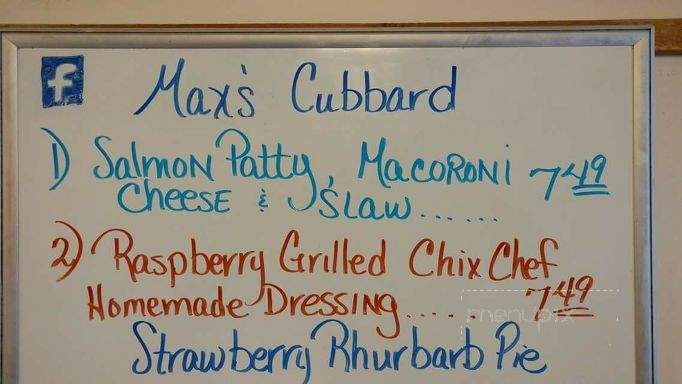 f Max's Cubbard
1) Salmon Patty, Macoroni 7 49
Cheese & Slaw......
2) Raspberry Grilled Chix Chef
Homemade Dressing..... 7 49
menupix
Strawberry Rhurbarb Pie